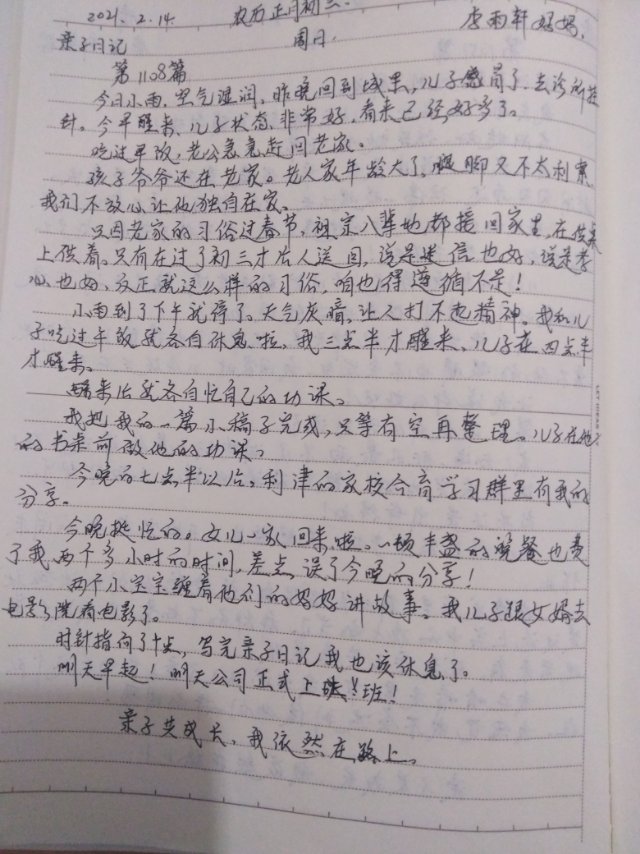 2021. 2. 14 农历正月初三. 李雨轩妈妈.
亲子日记 周日.
第1108篇
今日小雨,空气湿润,昨晚回到城里,儿子感冒了,去诊所挂
针。今早醒来,儿子状态非常好,看来已经好多了。
吃过早饭,老公急急赶回老家。
孩子爷爷还在老家。老人家年龄大了,腿脚又不太利索
我们不放心让他独自在家。
只因老家的习俗过春节,祖宗八辈她都接回家里,在供桌
上供着。只有在过了初三才片人送回,说是迷信也好,说是孝
心也好,反正就这么样的习俗,咱也得遵循不是!
小雨到了下午就停了。天气灰暗,让人打不起精神。我和儿
子吃过午饭就各自休息啦,我三点半才醒来,儿子在四点半
才醒来。
醒来后就各自忙自己的功课。
我把我的一篇小稿子完成,只等有空再整理。儿子在他
的书桌前做他的功课。
今晚的七点半以后,利津的家校合育学习群里有我的
分享。
今晚挺忙的。女儿一家回来啦。一顿丰盛的晚餐也费
了我两个多小时的时间,差点误了今晚的分享!
两个小宝宝缠着他们的妈妈讲故事。我儿子跟女婿去
电影院看电影了。
时针指向了十点,写完亲子日记我也该休息了。
明天早起!明天公司正式上班!
亲子共成长,我依然在路上。